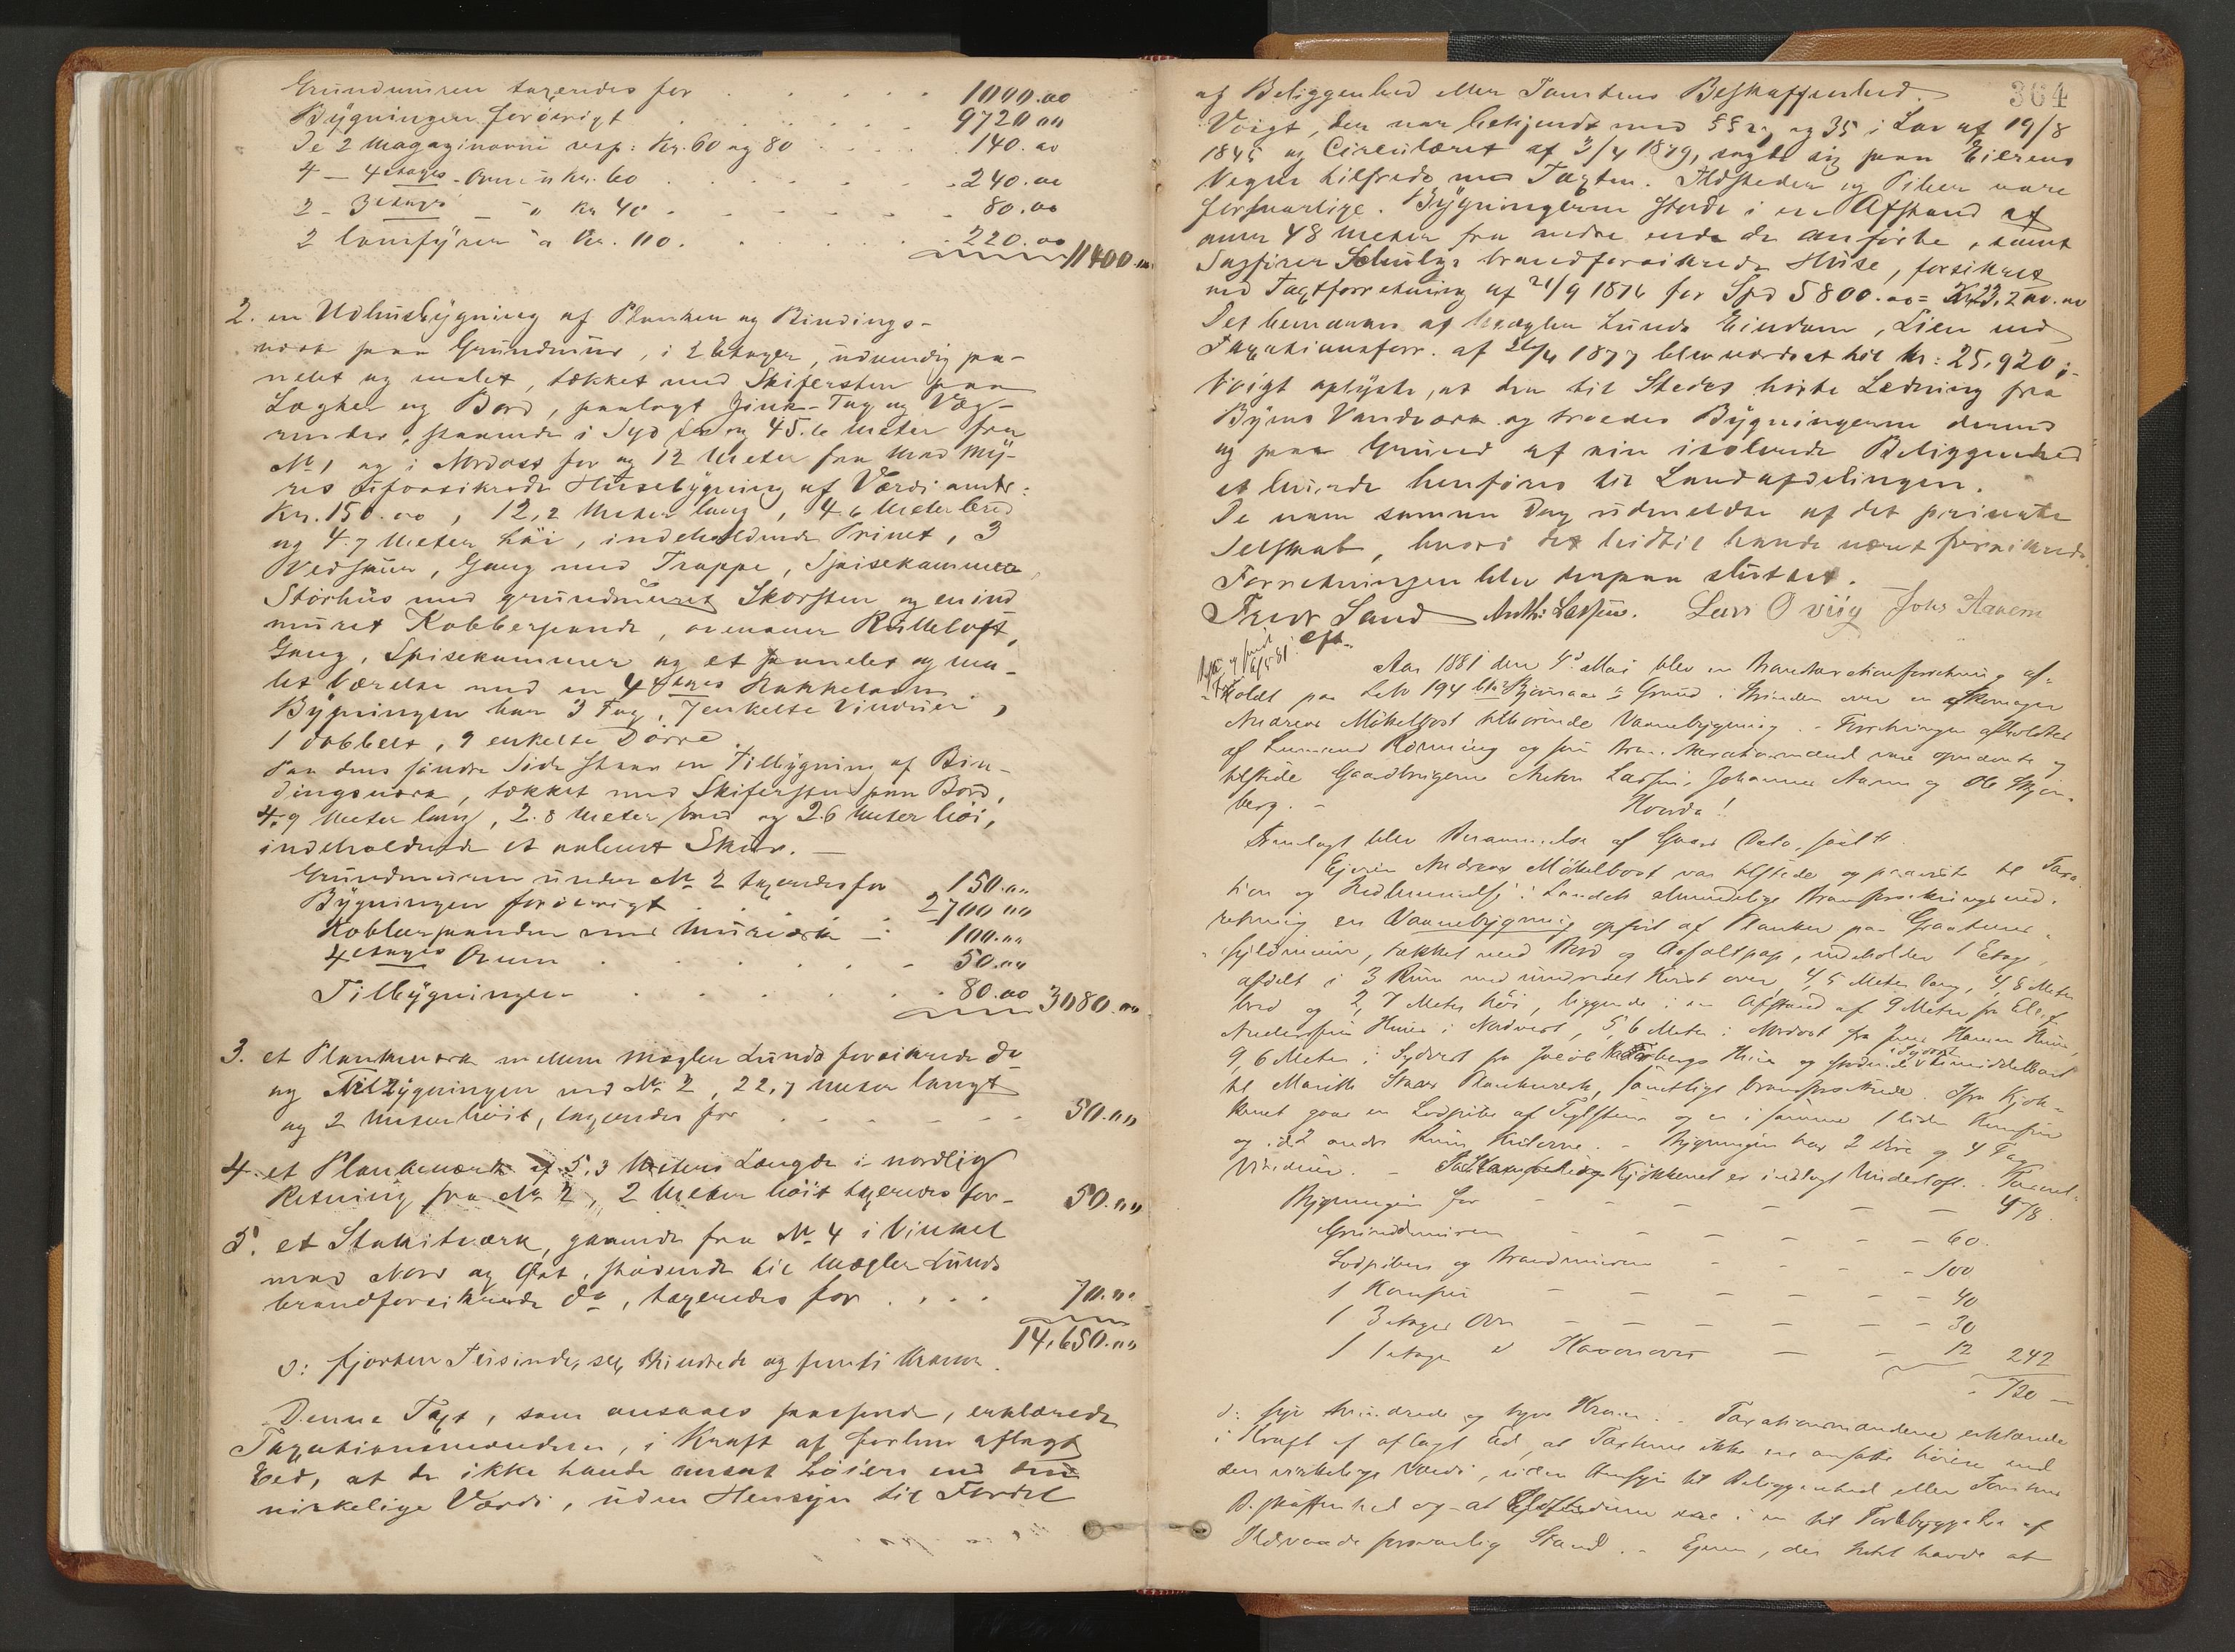 Grundmuren taxeredes for . . . . . 1000.00
Bygningen forøvrigt . . . . . 9720 00
De 2 Magazinovne resp: Kr. 60 og 80 . . . . 140.00
4 - 4 etages - Ovne à Kr. 60 . . . . . 240.00
2 - 3 etages - " à Kr 40 . . . . . 80.00
2 Comfyrer à Kr. 110. . . . . 220.00
11400.00
2. en Udhusbygning af Planker og Bindings-
værk paa Grundmur, i 2 Etager, udvendig pa-
nelet og malet, tækket med Skifersten paa
Lægter og Bord, paalagt Zink-Tag og Væg-
render, staaende i Syd for og 45.6 Meter fra
No 1 og i Nordost for og 12 Meter fra Mad My-
res uforsikrede Husebygning af Værdi antr:
Kr. 150.00, 12,2 Meter lang, 4 6 Meter bred
og 4.7 Meter høi, indeholdende Privet, 3
Vedskuer, Gang med Trappe, Spisekammer,
Störhus med grundmuret Skorsten og en ind
muret Kobberpande, ovenover Rulleloft,
Gang, Spisekammer og et panelet og ma-
let Værelse med en 4 etages Kakkelovn.
Bygningen har 3 Fag, 7 enkelte Vinduer,
1 dobbelt, 9 enkelte Dörre.
Paa dens söndre Side staar en Tilbygning af Bin-
dingsværk, tækket med Skifersten paa Bord,
4.9 Meter lang, 2.8 Meter bred og 2.6 Meter høi,
indeholdende et aabent Skur. —
Grundmuren under No 2 taxeredes for 150.00
Bygningen forøvrigt . . . 2700 00
Kobberpanden med Murværk - 100.00
4 etages Ovnen . . . . . 50.00
Tilbygningen . . . . . 80.00 3080.00
3. et Plankeværk mellem Mægler Lunds forsikrede do
og Tilbygningen ved No 2, 22,7 Meter langt
og 2 Meter høit, taxeredes for . . . . . 50.00
4. et Plankeværk af 5,3 Meters Længde i nordlig
Retning fra No 2, 2 Meter høit taxeredes for - 50.00
5. et Stakitværk, gaaende fra No 4 i Vinkel
mod Nord og Øst, stödende til Mægler Lunds
brandforsikrede do, taxeredes for . . . . 70.00
14,650.00
o: fjorten Tusinde, sex Hundrede og femti Kroner.
Denne Taxt, som ansaaes passende, erklærede
Taxationsmændene, i Kraft af forhen aflagt
Eed, at de ikke havde ansat höiere end den
virkelige Værdi, uden Hensyn til Fordel
364
af Beliggenhed eller Tomtens Beskaffenhed.
Voigt, der var bekjendt med §§ 27 og 35 i Lov af 19/8
1845 og Circulæret af 3/4 1879, sagde sig paa Eierens
Vegne tilfreds med Taxten. Ildsteder og Piber vare
forsvarlige. Bygningerne stode i en Afstand af
over 48 Meter fra andre end de anførte, samt
Sagfører Schulz's brandforsikrede Huse, forsikret
ved Taxtforretning af 21/9 1876 for Spd 5800.00 = Kr 23,200.00
Det bemærkes at Mægler Lunds Eiendom, Lien ved
Taxationsforr. af 26/4 1877 blev vurderet til Kr: 25,920,-
Voigt oplyste, at den til Stedet hørte Ledning fra
Byens Vandværk og troedes Bygningerne derved
og paa Grund af sin isolerede Beliggenhed
at burde henføres til Landafdelingen.
De vare samme Dag udmeldte af det private
Selskab, hvori det hidtil havde været forsikrede.
Forretningen blev derpaa sluttet.
Fredr Sand Anth: Lassen. Lars Oviig Johs Aanem
Aar 1881 den 4de Mai blev en Brandtaxationsforretning af-
holdt paa Lebo 194 bls Bjørnaas's Grund i Strinden over en Skomager
Andreas Mökelbost tilhörende Vaanebygning. - Forretningen afholdtes
af Lensmand Rönning og som Brandtaxationsmænd vare opnævnte og
tilstede Gaardbrugerne Anton Lassen, Johannes Aanem og Ole Skjøn-
berg. - Hvorda!
Fremlagt blev Berammelse af Gaars Dato, saal.
Ejeren Andreas Mökelbost var tilstede og paaviste til Taxa-
tion og Indlemmelse i Landets almindelige Brandforsikringsind-
retning en Vaanebygning opfört af Planker paa Graasteens-
fyldmuur, tækket med Bord og Asfaltpap, indeholder 1 Etage,
afdelt i 3 Rum med uindredet Kvist over, 4,5 Meter lang, 4,5 Meter
bred og 2,7 Meter høi, liggende i en Afstand af 9 Meter fra Elef
Andersens Huus i Nordvest, 5,6 Meter i Nordost fra Jens Hansens Huus,
9,6 Meter i Sydvest fra Jacob Forbergs Huus og stödende i Sydost umiddelbart
til Marith Staars Plankeværk, samtlige brandforsikrede. Fra Kjök-
kenet gaar en Lodpibe af Teglsteen og er i samme 1 liden Komfur
og i de 2 andre Rum Kakelovne. - Bygningen har 2 Döre og 4 Fag
Vinduer. - Kjökkenet er indlagt Underloft. - Taxeret:
Bygningen for - - - - - - 478.
Grundmuren - - - - - 60.
Lodpiben og Brandmuren - - - - 100
1 Komfur - - - - - 40
1 3 etages Ovn - - - - - 30
1 1 etage d Kavonovn - - 12 242
720 —
o: syv hundrede og tyve Kroner. - Taxationsmændene erklærede
i Kraft af aflagt Ed, at Taxterne ikke ere ansatte höiere end
den virkelige Værdi, uden Hensyn til Beliggenhed eller Tomtens
Beskaffenhed og at Ildstederne ere i en til Forebyggelse af
Ildsvaade forsvarlig Stand. - Ejeren, der heelt havde at